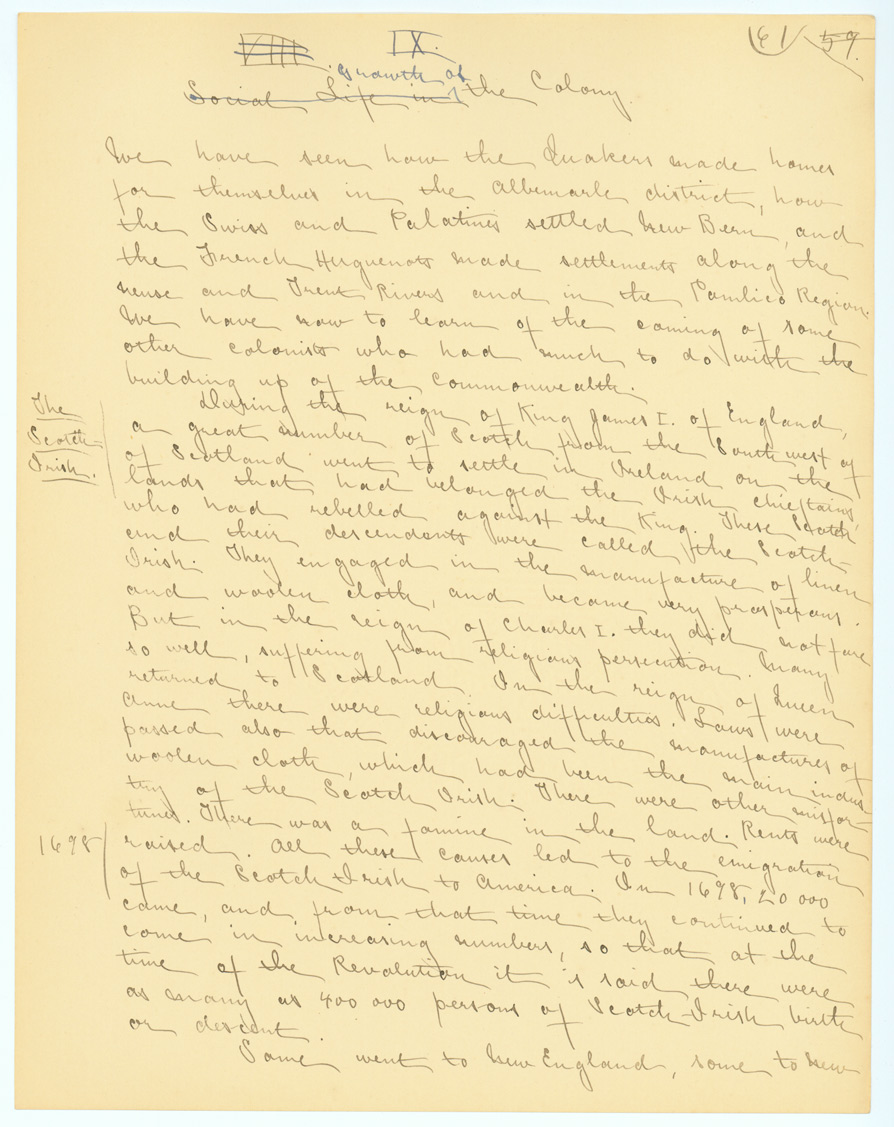 VIII. IX. 61 59.
Growth of
Social Life in the Colony.
We have seen how the Quakers made homes
for themselves in the Albemarle district, how
the Swiss and Palatines settled New Bern, and
the French Huguenots made settlements along the
neuse and Trent Rivers and in the Pamlico Region.
We have now to learn of the coming of some
other colonists who had much to do with the
building up of the commonwealth.
The
Scotch
Irish.
During the reign of King James I. of England,
a great number of Scotch from the South west of
of Scotland went to settle in Ireland on the
lands that had belonged the Irish chieftains,
who had rebelled against the King. These Scotch
and their descendents were called the Scotch-
Irish. They engaged in the manufacture of linen
and woolen cloth, and became very prosperous.
But in the reign of Charles I. they did not fare
so well, suffering from religious persecution. Many
returned to Scotland. In the reign of Queen
Anne there were religious difficulties. Laws were
passed also that discouraged the manufactures of
woolen cloth, which had been the main indus-
try of the Scotch Irish. There were other misfor-
tunes. There was a famine in the land. Rents were
1698
raised. All these causes led to the emigration
of the Scotch-Irish to America. In 1698, 20 000
came, and from that time they continued to
come in increasing numbers, so that at the
time of the Revolution it is said there were
as many as 400 000 persons of Scotch-Irish birth
or descent.
Some went to New England, some to New